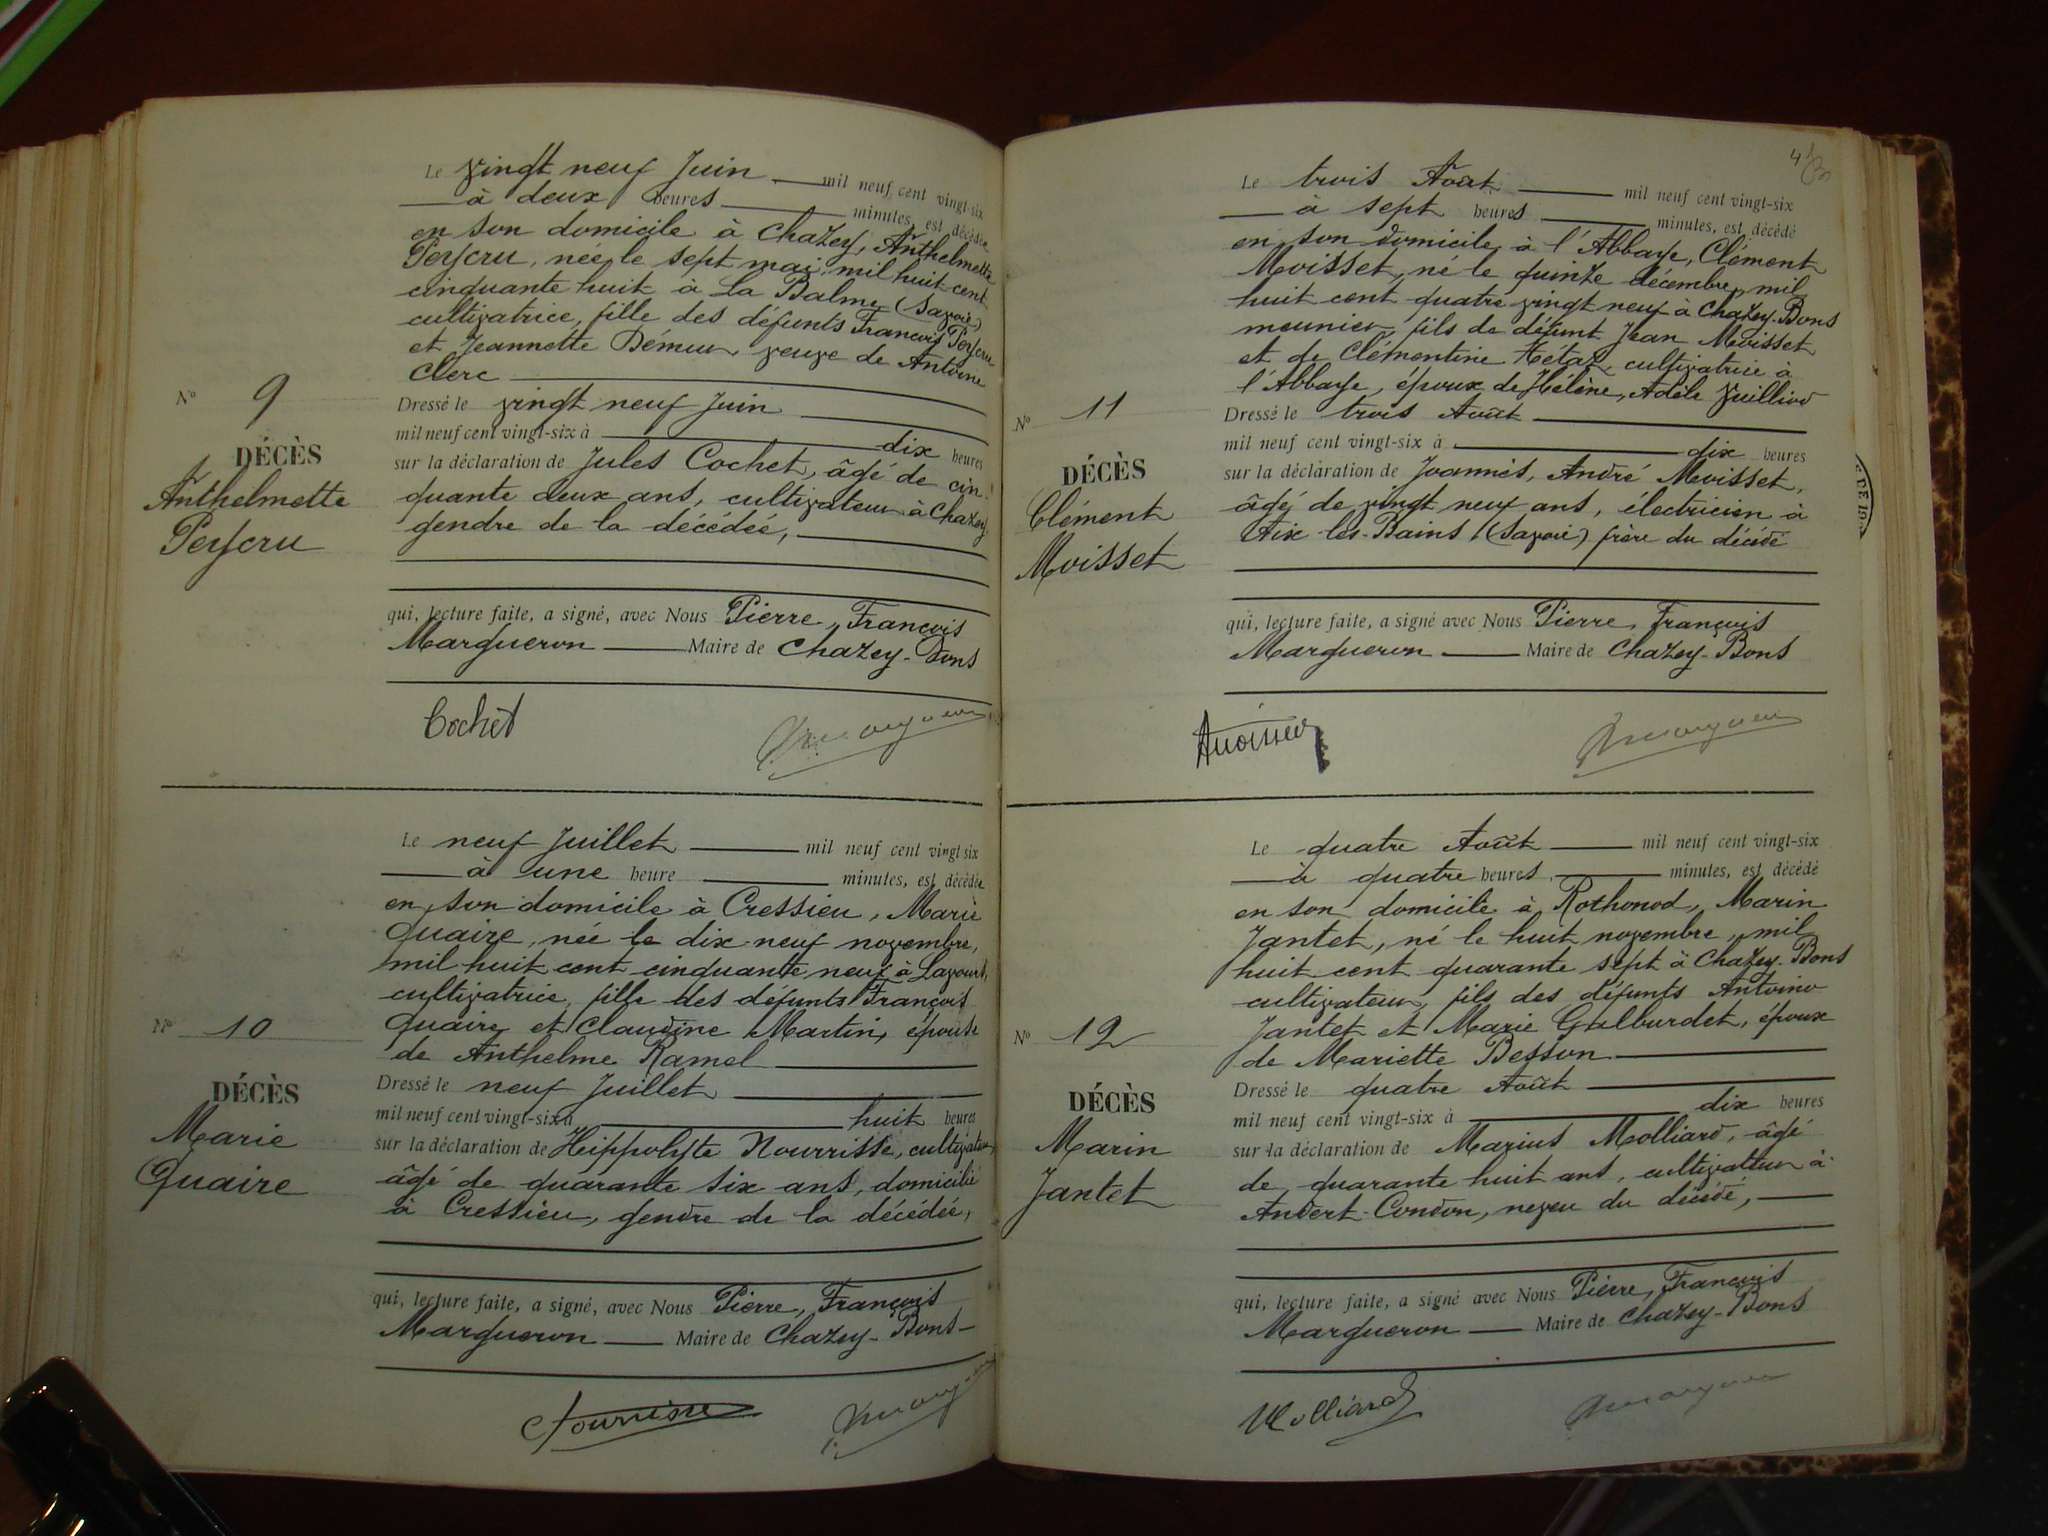 Le vingt neuf Juin mil neuf cent vingt-six
à deux heures minutes, est décédée
en son domicile à Chazey, Anthelmette
Peyscru, née le sept mai, mil huit cent
cinquante huit à La Balme (Savoie)
cultivatrice, fille des défunts François Peyscru
et Jeannette Démeur veuve de Antoine
Clerc
N° 9
DÉCÈS
Anthelmette
Peyscru
Dressé le vingt neuf Juin
mil neuf cent vingt-six à dix heures
sur la déclaration de Jules Cochet, âgé de cin-
quante deux ans, cultivateur à Chazey
gendre de la décédée,
qui, lecture faite, a signé, avec Nous Pierre, François
Margueron Maire de Chazey-Bons
Cochet
Le neuf Juillet mil neuf cent vingt-six
à une heure minutes, est décédée
en son domicile à Cressieu, Marie
Quaire, née le dix-neuf novembre,
mil huit cent cinquante neuf à Lavours,
cultivatrice, fille des défunts François
Quaire et Claudine Martin, épouse
de Anthelme Ramel
N° 10
DÉCÈS
Marie
Quaire
Dressé le neuf Juillet
mil neuf cent vingt-six à huit heures
sur la déclaration de Heippolyte Nourrisse, cultivateur
âgé de quarante six ans, domicilié
à Cressieu, gendre de la décédée,
qui, lecture faite, a signé, avec Nous Pierre, François
Margueron Maire de Chazey-Bons
Le trois Août mil neuf cent vingt-six
à sept heures minutes, est décédé
en son domicile à l'Abbaye, Clément
Moisset, né le quinze décembre, mil
huit cent quatre vingt neuf à Chazey-Bons
meunier, fils de défunt Jean Moisset
et de Clémentine Hétaz, cultivatrice à
l'Abbaye, époux de Hélène, Adèle Vuilliod
N° 11
DÉCÈS
Clément
Moisset
Dressé le trois Août
mil neuf cent vingt-six à dix heures
sur la déclaration de Joannès, André Moisset,
âgé de vingt neuf ans, électricien à
Aix-les-Bains (Savoie) frère du décédé
qui, lecture faite, a signé avec Nous Pierre, François
Margueron Maire de Chazey-Bons
Le quatre Août mil neuf cent vingt-six
à quatre heures minutes, est décédé
en son domicile à Rothonod, Marin
Jantet, né le huit novembre, mil
huit cent quarante sept à Chazey-Bons
cultivateur, fils des défunts Antoine
Jantet et Marie Gulburdet, époux
de Mariette Besson
N° 12
DÉCÈS
Marin
Jantet
Dressé le quatre Août
mil neuf cent vingt-six à dix heures
sur la déclaration de Marius Molliard, âgé
de quarante huit ans, cultivateur à
Andert-Condon, neveu du décédé,
qui, lecture faite, a signé avec Nous Pierre, François
Margueron Maire de Chazey-Bons
Molliard